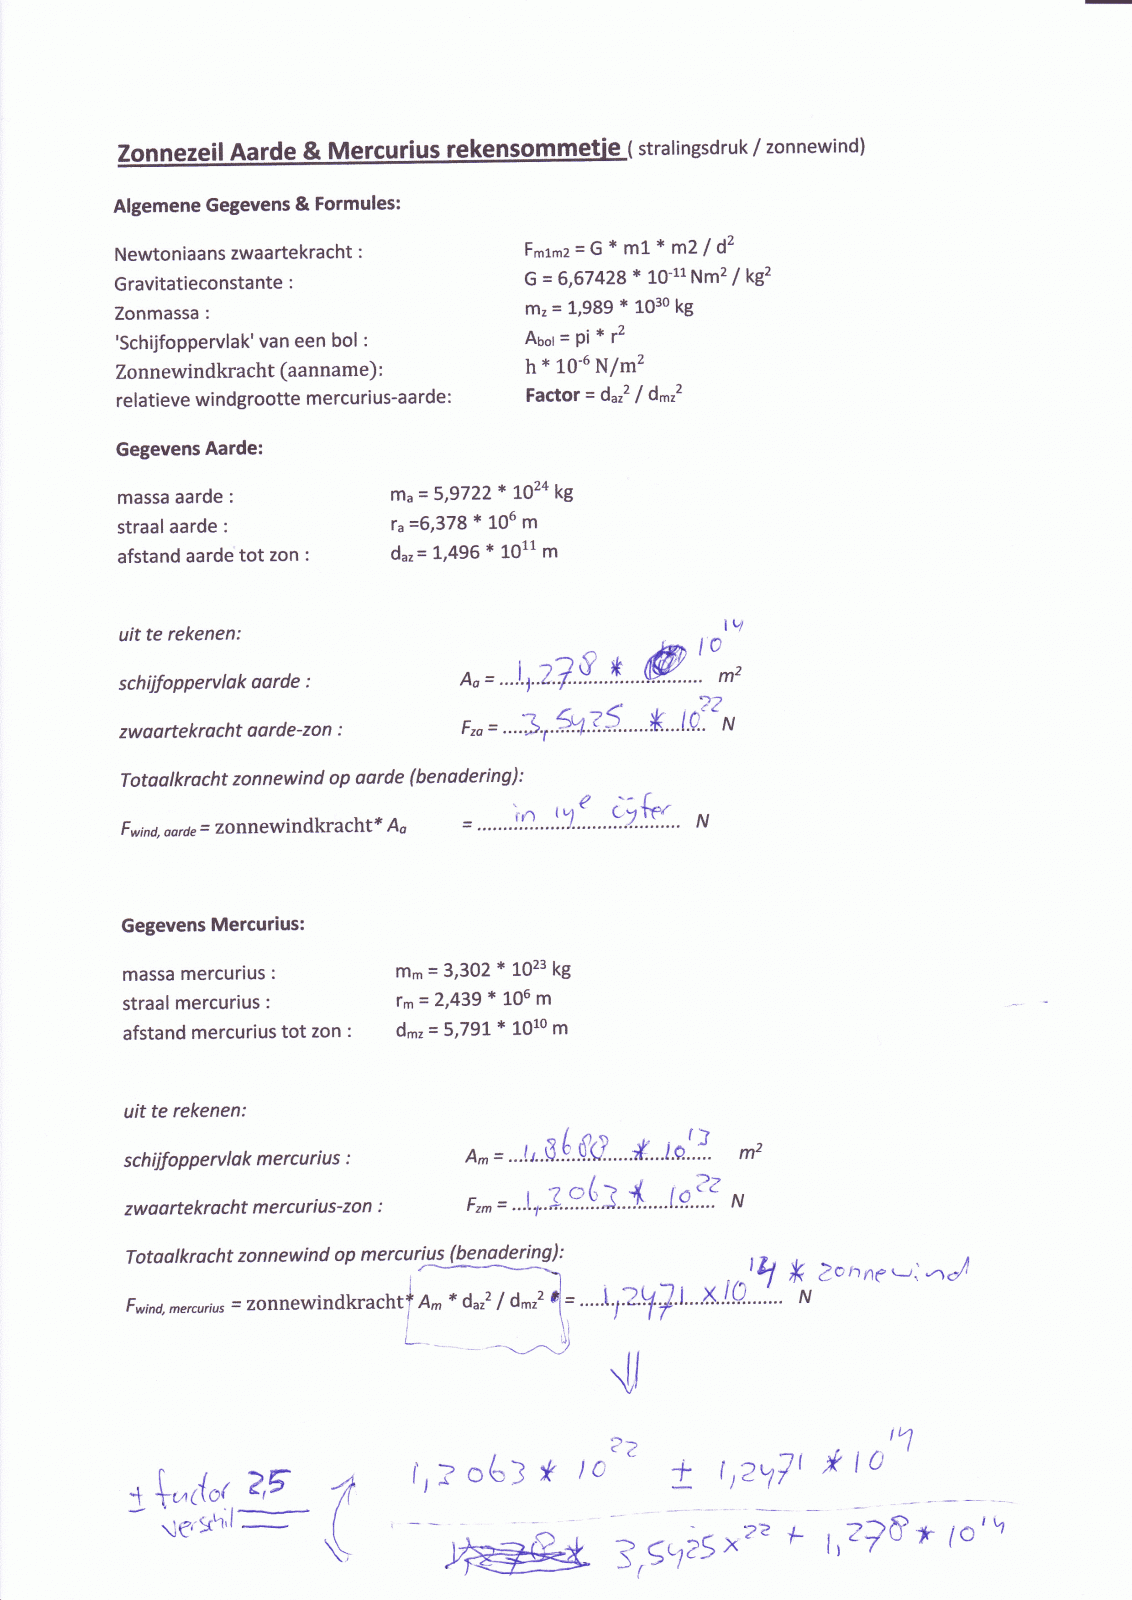 Zonnezeil Aarde & Mercurius rekensommetje ( stralingsdruk / zonnewind)
Algemene Gegevens & Formules:
Newtoniaans zwaartekracht : Fm1m2 = G * m1 * m2 / d²
Gravitatieconstante : G = 6,67428 * 10⁻¹¹ Nm² / kg²
Zonmassa : mz = 1,989 * 10³⁰ kg
'Schijfoppervlak' van een bol : Abol = pi * r²
Zonnewindkracht (aanname): h * 10⁻⁶ N/m²
relatieve windgrootte mercurius-aarde: Factor = daz² / dmz²
Gegevens Aarde:
massa aarde : ma = 5,9722 * 10²⁴ kg
straal aarde : ra =6,378 * 10⁶ m
afstand aarde tot zon : daz = 1,496 * 10¹¹ m
uit te rekenen:
schijfoppervlak aarde : Aa = 1,278 * 10¹⁴ m²
zwaartekracht aarde-zon : Fza = 3,5425 * 10²² N
Totaalkracht zonnewind op aarde (benadering):
Fwind, aarde = zonnewindkracht* Aa = in 14e cijfer N
Gegevens Mercurius:
massa mercurius : mm = 3,302 * 10²³ kg
straal mercurius : rm = 2,439 * 10⁶ m
afstand mercurius tot zon : dmz = 5,791 * 10¹⁰ m
uit te rekenen:
schijfoppervlak mercurius : Am = 1,8688 * 10¹³ m²
zwaartekracht mercurius-zon : Fzm = 1,3063 * 10²² N
Totaalkracht zonnewind op mercurius (benadering):
Fwind, mercurius = zonnewindkracht* Am * daz² / dmz² = 1,2471 x 10¹⁴ * zonnewind N
⇓
± factor 2,5 verschil
1,3063 * 10²² ± 1,2471 * 10¹⁴
3,5425 x²² + 1,278 * 10¹⁴